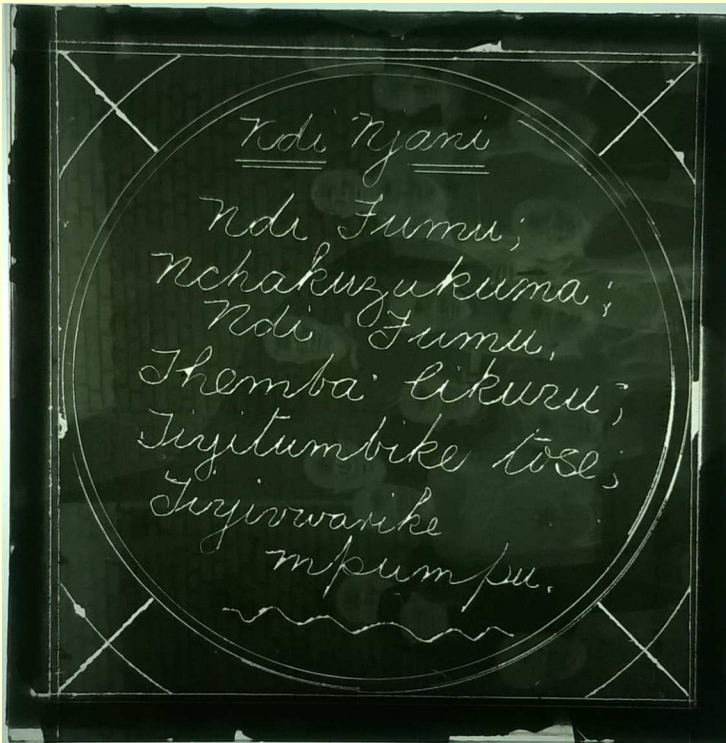 Ndi Njani
Ndi Fumu;
Nchakuzukuma;
Ndi Fumu,
Themba likuru;
Tiyitumbike tose;
Tiyivwarike
mpumpu.